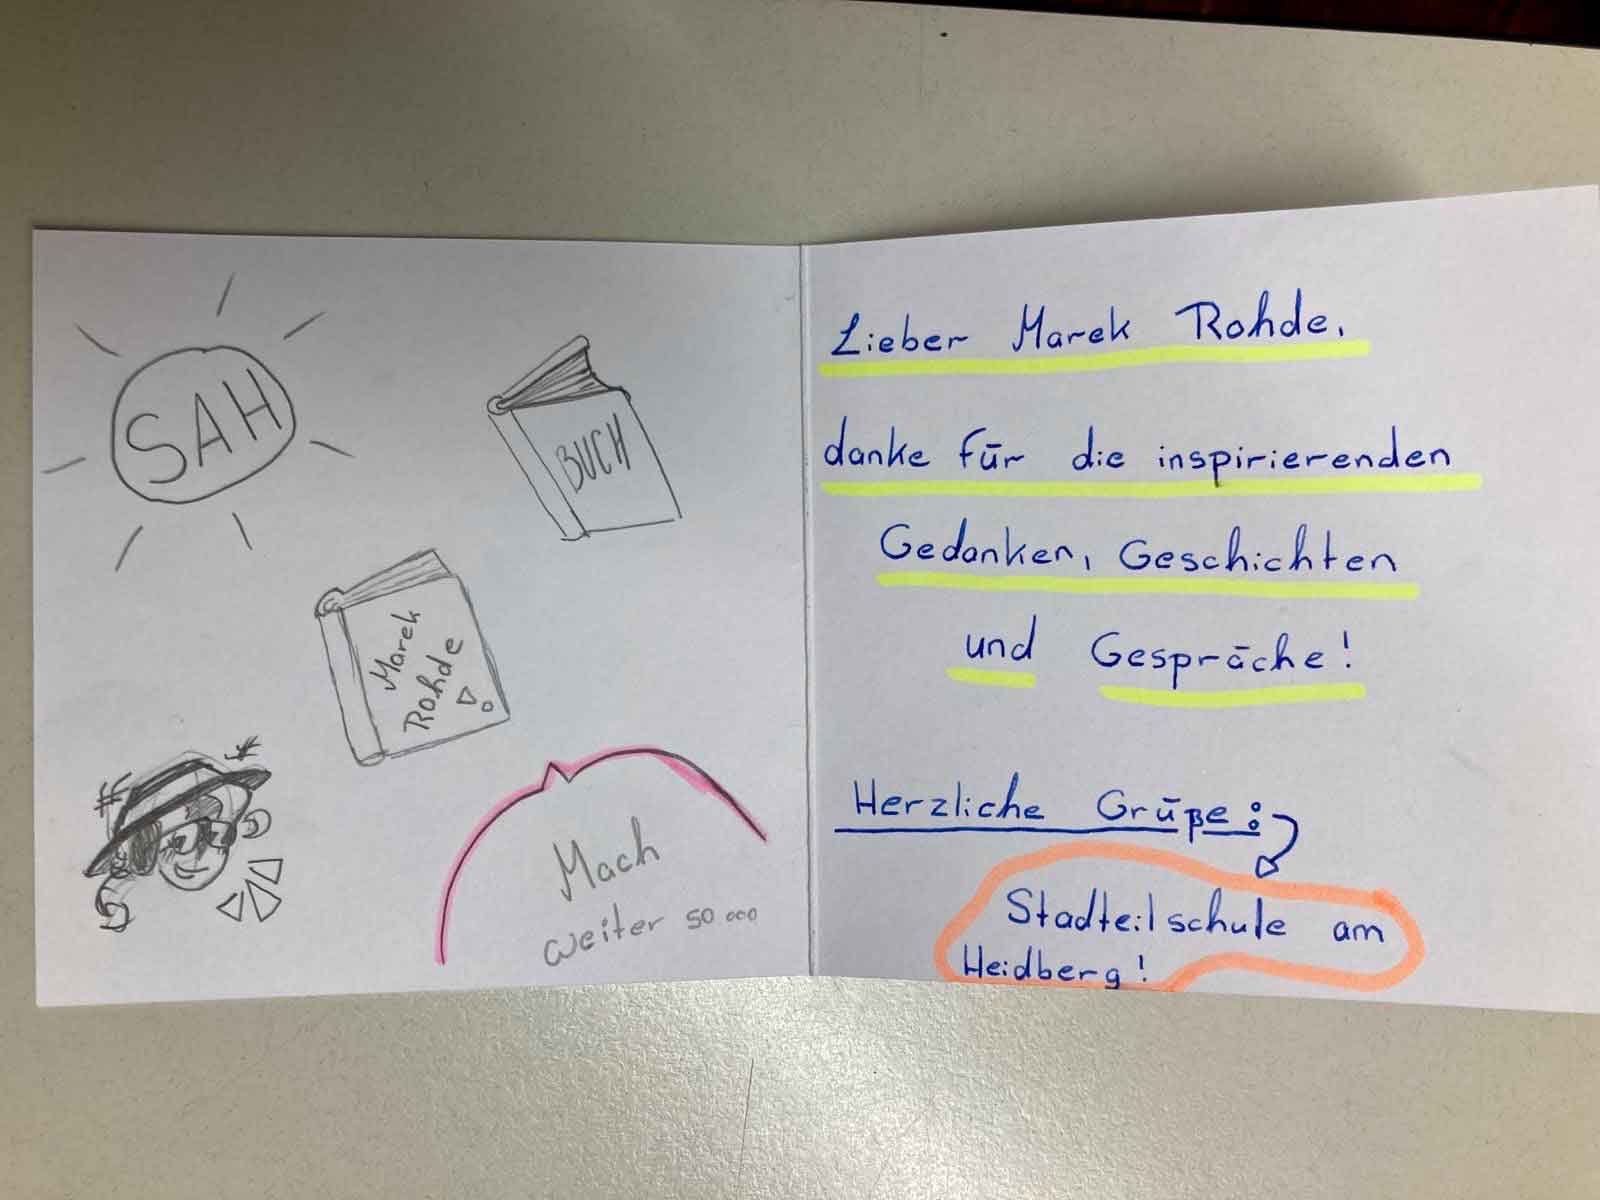 SAH
BUCH
Marek
Rohde
!
Mach
weiter so ooo
Lieber Marek Rohde,
danke für die inspirierenden
Gedanken, Geschichten
und Gespräche!
Herzliche Grüße:
Stadteilschule am
Heidberg!